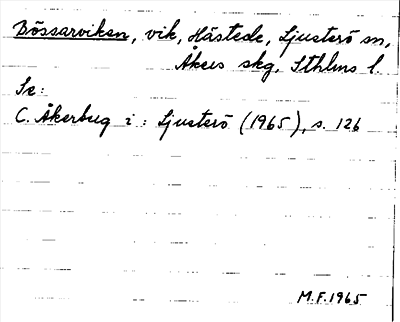 Bössarviken, vik, Hästede, Ljusterö sn,
Åkers skg, Sthlms l.
Se:
C. Åkerbug i: Ljusterö (1965), s. 126
M.F. 1965